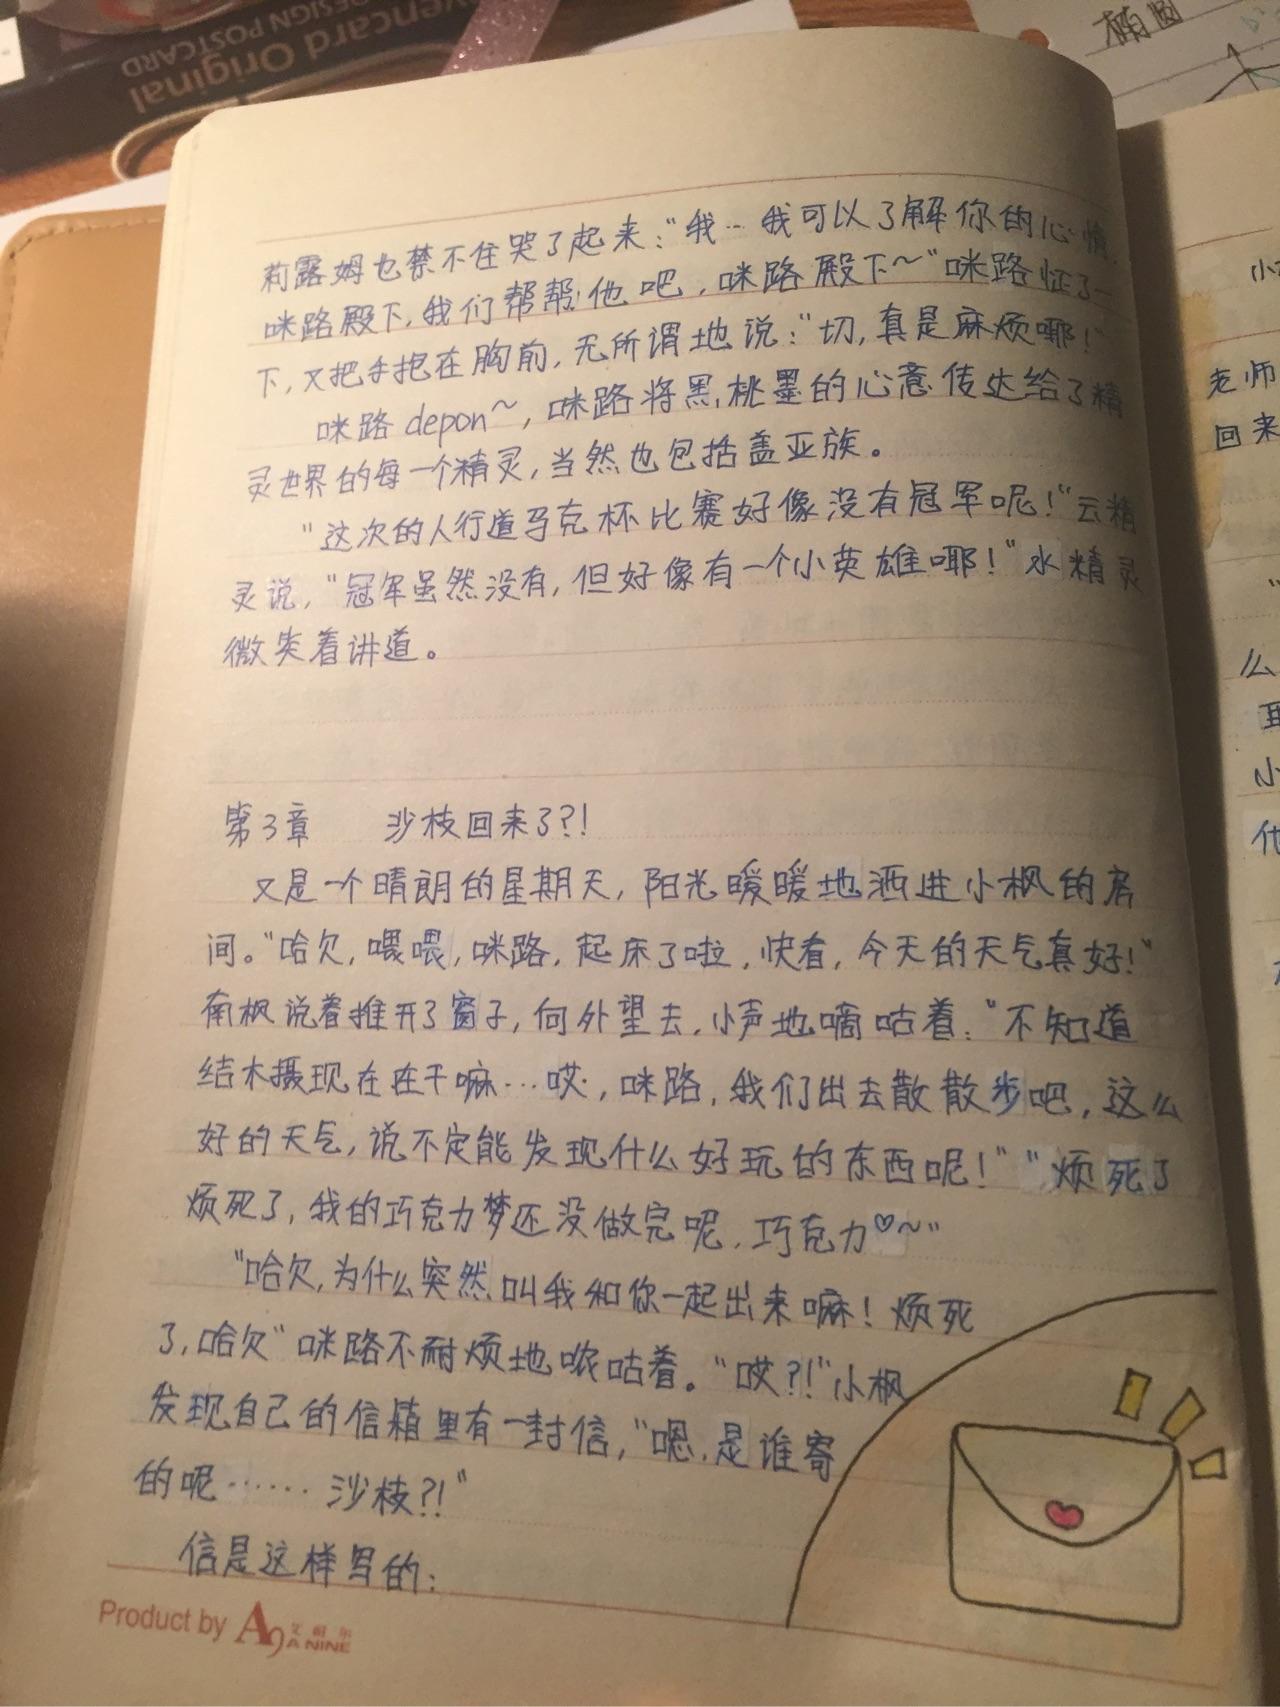 Original
DESIGN POSTCARD
椭圆
莉露姆也禁不住哭了起来：“我…我可以了解你的心情，
咪路殿下，我们帮帮他吧，咪路殿下～”咪路怔了一
下，又把手抱在胸前，无所谓地说：“切，真是麻烦哪！”
咪路depon～，咪路将黑桃墨的心意传达给了精
灵世界的每一个精灵，当然也包括盖亚族。
“这次的人行道马克杯比赛好像没有冠军呢！”云精
灵说，“冠军虽然没有，但好像有一个小英雄哪！”水精灵
微笑着讲道。
第3章 沙枝回来了?!
又是一个晴朗的星期天，阳光暖暖地洒进小枫的房
间。“哈欠，喂喂，咪路，起床了啦，快看，今天的天气真好！”
南枫说着推开了窗子，向外望去，小声地嘀咕着：“不知道
结木摄现在在干嘛…哎，咪路，我们出去散散步吧，这么
好的天气，说不定能发现什么好玩的东西呢！”“烦死了
烦死了，我的巧克力梦还没做完呢，巧克力♡～”
“哈欠，为什么突然叫我和你一起出来嘛！烦死
了，哈欠”咪路不耐烦地哝咕着。“哎?!”小枫
发现自己的信箱里有一封信，“嗯，是谁寄
的呢……沙枝?!”
信是这样写的：
Product by A9 艾耐尔 A NINE
老师
回来
么
小